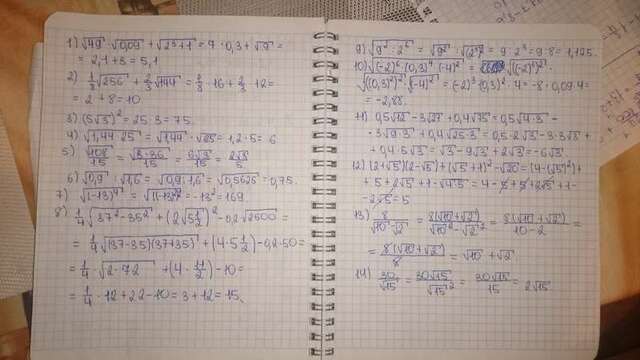 1) √49 · √0,09 + √(2³+1) = 7 · 0,3 + √9 =
= 2,1 + 3 = 5,1
2) 1/8 √256 + 2/3 √144 = 1/8 · 16 + 2/3 · 12 =
= 2 + 8 = 10
3) (5√3)² = 25 · 3 = 75.
4) √(1,44 · 25) = √1,44 · √25 = 1,2 · 5 = 6
5) √108/15 = √(3·36)/15 = 6√3/15 = 2√3/5
6) = 0,75.
7) √(-13)⁴ = = 169.
8) 1/4 √(37²-35²) + (2√(5 1/2))² - 0,2 √2500 =
= 1/4 √((37-35)(37+35)) + (4 · 5 1/2) - 0,2 · 50 =
= 1/4 · √(2 · 72) + (4 · 11/2) - 10 =
= 1/4 · 12 + 22 - 10 = 3 + 12 = 15.
9) = 9 · 2³ = 9 : 8 = 1,125.
10) √((-2)⁶ (0,3)⁴ (-4)²) =
= (-2)³ · (0,3)² · 4 = -8 · 0,09 · 4 =
= -2,88.
11) 0,5√12 - 3√27 + 0,4√75 = 0,5√(4·3) -
- 3√(9·3) + 0,4√(25·3) = 0,5 · 2√3 - 3 · 3√3 +
+ 0,4 · 5√3 = √3 - 9√3 + 2√3 = -6√3
12) (2+√5)(2-√5) + (√5+1)² - √20 = (4-(√5)²) +
+ 5 + 2√5 + 1 - √(4·5) = 4 - 5 + 5 + 2√5 + 1 -
- 2√5 = 5
13) 8/(√10-√2) = 8(√10+√2)/(√10²-√2²) = 8(√10+√2)/(10-2) =
= 8(√10+√2)/8 = √10 + √2
14) 30/√15 = 30√15/√15² = 30√15/15 = 2√15